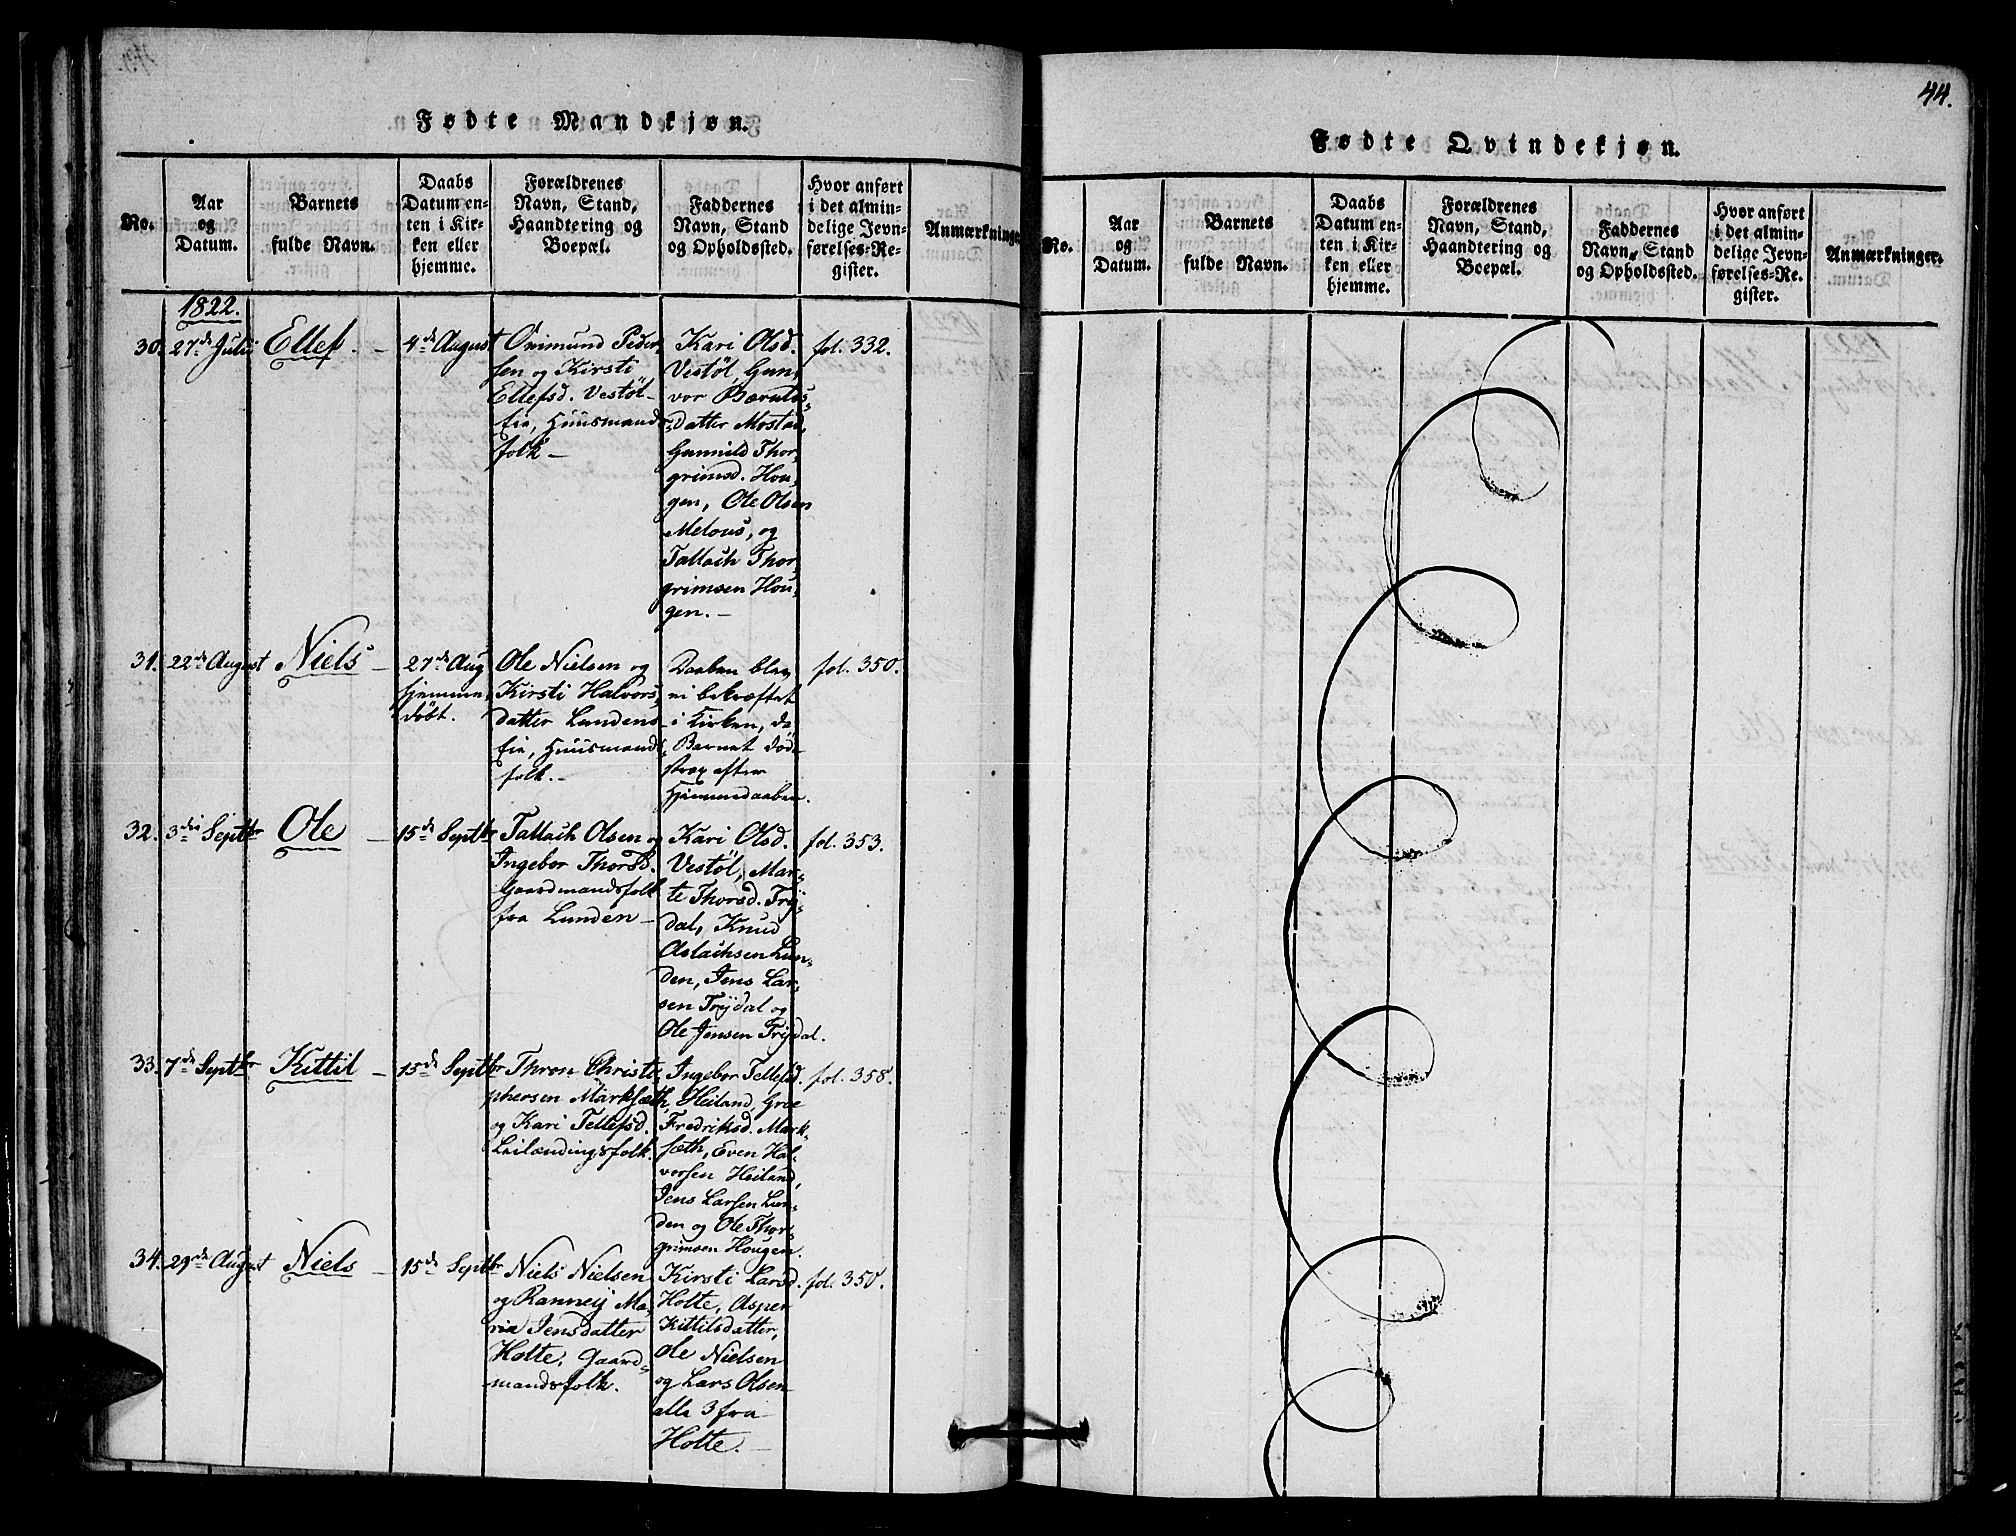 Fødte Mandkjøn.
No.
Aar
og
Datum.
Barnets
fulde Navn.
Daabs
Datum en-
ten i Kir-
ken eller
hjemme.
Forældrenes
Navn, Stand,
Haandtering og
Boepæl.
Faddernes
Navn, Stand
og Opholdssted.
Hvor anført
i det almin-
delige Jevn-
førelses-Re-
gister.
Anmærkninger
1822.
30. 27de Julii
Ellef. –
4de August
Omund Peder-
sen og Kirsti
Ellefsd. Vestöl-
Eie, Huusmands
folk –
Kari Olsd.
Vestöl, Gun-
vor Berntds-
datter Mostad,
Gunnild Thor-
grimsd. Hou-
gen, Ole Olsen
Melous, og
Tallach Thor-
grimsen Hou-
gen. –
fol. 332.
31. 22de August
Niels –
27de Aug
hjemme
döbt.
Ole Nielsen og
Kirsti Halvors-
datter Lundens
Eie, Huusmands
folk. –
Daaben blev
ei bekræftet
i Kirken, da
Barnet döde
strax efter
Hjemmedaaben.
fol. 350.
32. 3die Septbr
Ole –
15de Septbr
Tallach Olsen og
Ingebor Thorsd.
Gaardmandsfolk
fra Lunden –
Kari Olsd.
Vestöl, Mar-
te Thorsd. Trÿ-
dal, Knud
Aslachsen Lun-
den, Jens Lar-
sen Trÿdal og
Ole Jensen Trÿdal.
fol. 353.
33. 7de Septbr
Kittil –
15de Septbr
Thron Christo-
phersen Marksæth
og Kari Tellefsd.
Leilændingsfolk.
Ingebor Tellefsd.
Heiland, Groe
Fredriksd. Mark-
sæth, Even Hal-
vorsen Heiland,
Jens Larsen Lun-
den og Ole Thor-
grimsen Hougen.
fol. 358.
34. 29de August
Niels –
15de Septbr
Niels Nielsen
og Ranneÿ Ma-
ria Jensdatter
Holte, Gaard-
mandsfolk.
Kirsti Larsd.
Holte, Asper
Kittilsdatter,
Ole Nielsen
og Lars Olsen
alle 3 fra
Holte. –
fol. 350.
44.
Fødte Qvindekjøn.
No.
Aar
og
Datum.
Barnets
fulde Navn.
Daabs
Datum en-
ten i Kir-
ken eller
hjemme.
Forældrenes
Navn, Stand,
Haandtering og
Boepæl.
Faddernes
Navn, Stand
og Opholdssted.
Hvor anført
i det almin-
delige Jevn-
førelses-Re-
gister.
Anmærkninger.